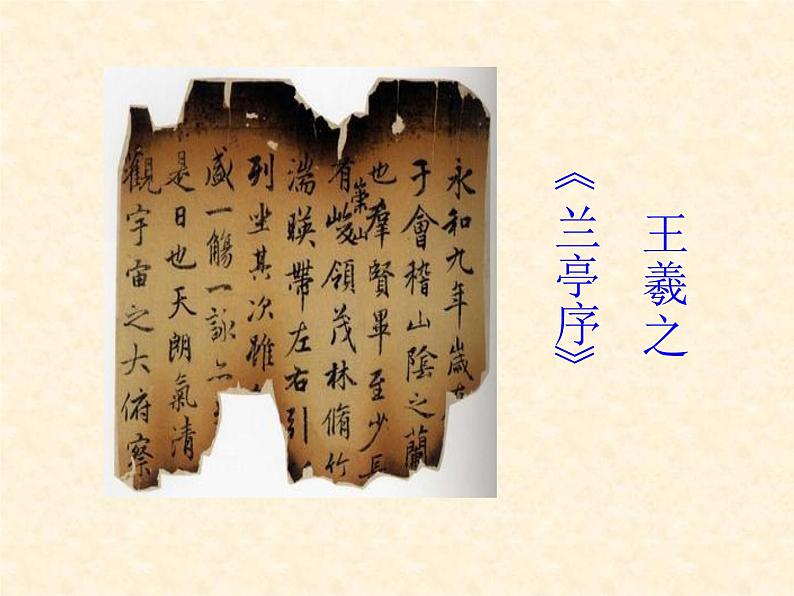 王羲之
《兰亭序》
永和九年歲
于會稽山陰之蘭
也羣賢畢至少長
有崇山峻領茂林脩竹
湍暎帶左右引
列坐其次雖
盛一觴一詠亦
是日也天朗氣清
觀宇宙之大俯察